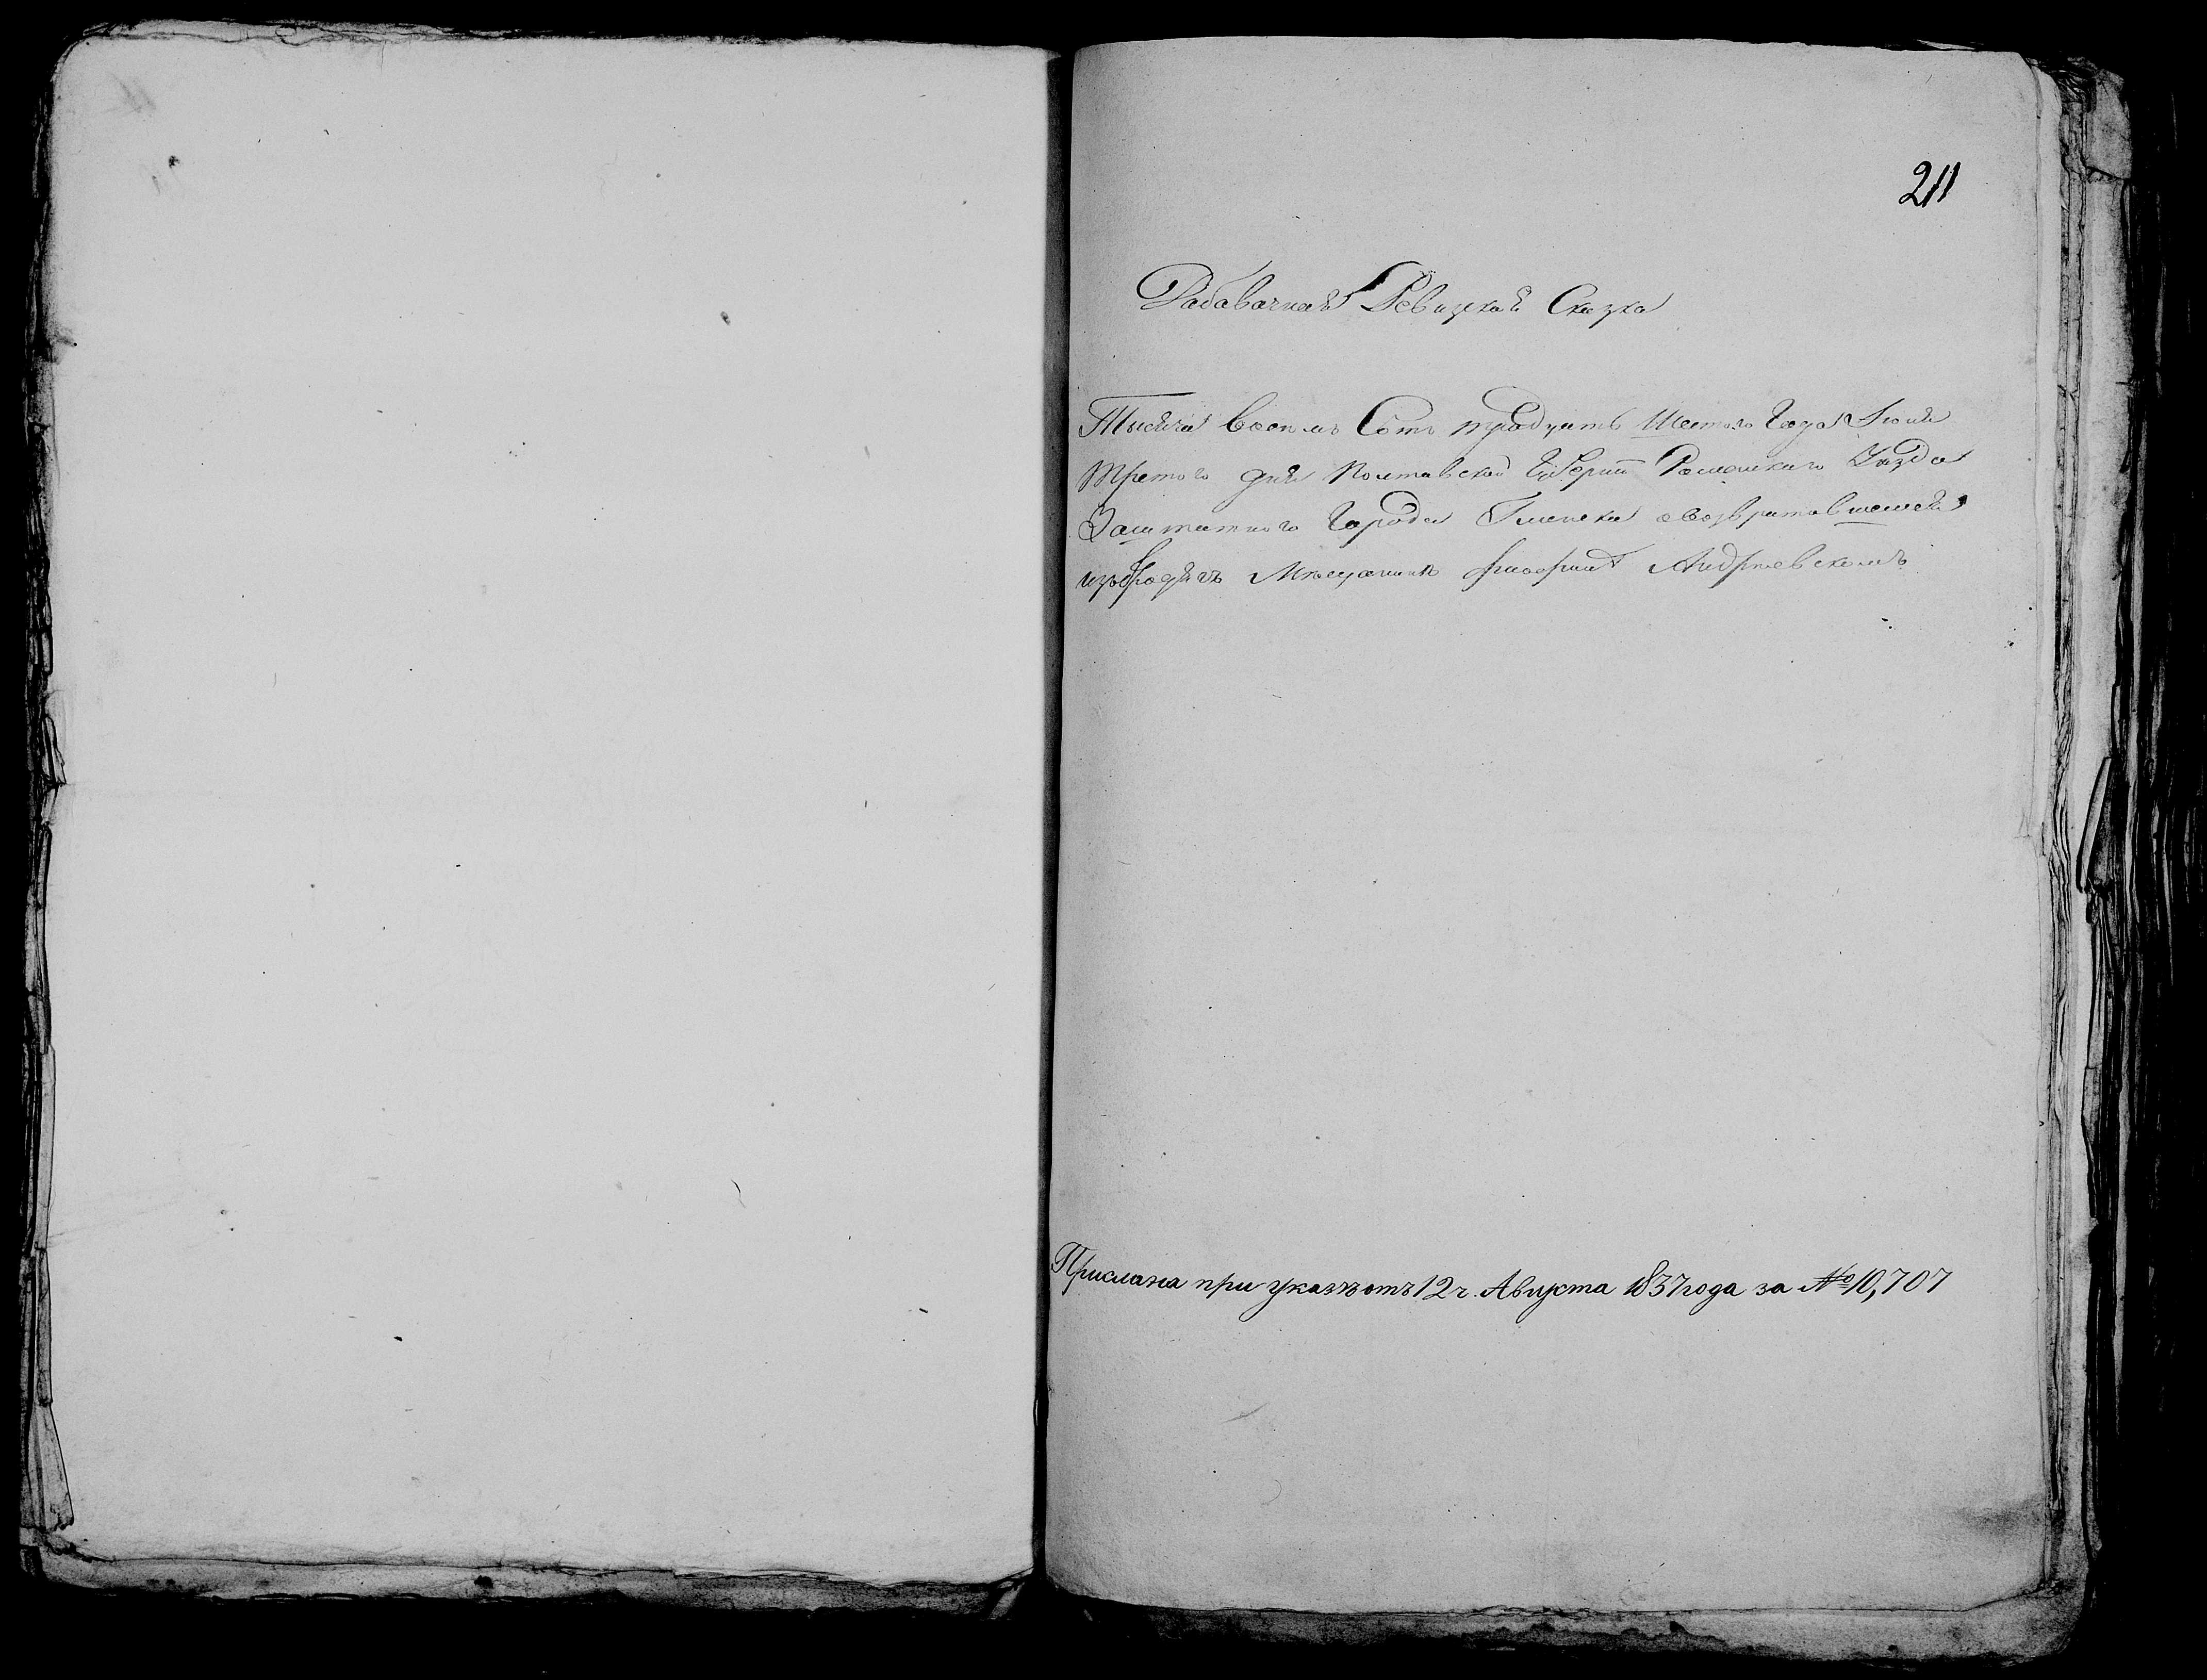 211
Дабавочная Ревизкая Сказка
Тысяча восемь Сотъ тридцать Шестого Года Июня
третого дня Полтавской Губернии Роменского Уезда
Заштатного Города Глинска овозвратавшемся
избродягъ Мещанине Андриевскомъ
Прислана при указѣ отъ 12 ч. Августа 1837 года за № 10,707